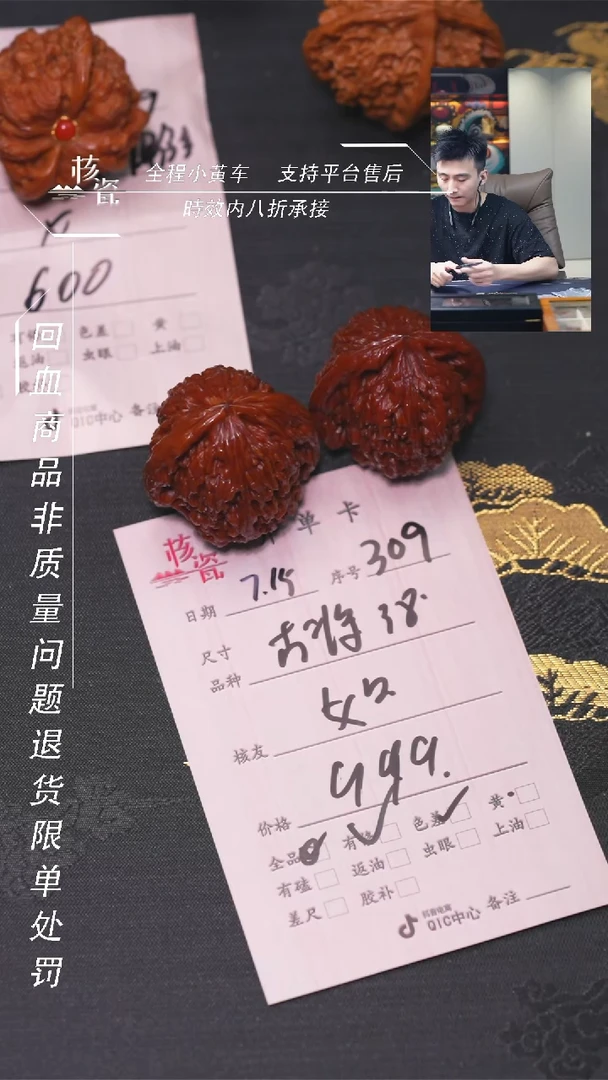 核瓷
全程小黄车 支持平台售后
時效内八折承接
600
色差 黄
返油 虫眼 上油
QIC中心 备注
回血商品非质量问题退货限单处罚
核瓷 单卡
日期 7.15 序号 309
尺寸 38.
品种
核友
价格 999.
全品 有 色差 黄
有磕 返油 虫眼 上油
差尺 胶补
QIC中心 备注